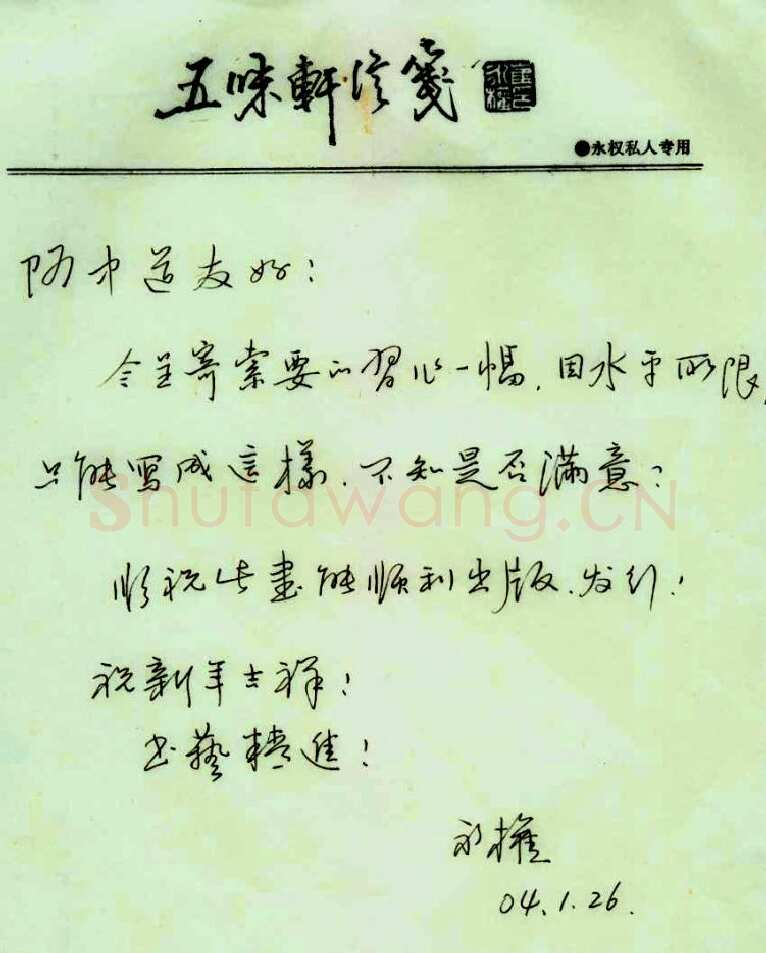 五味軒信箋
●永权私人专用
阿才道友好：
今呈寄索要的習作一幅，因水平所限，
只能寫成這樣，不知是否滿意？
Shufawang.CN
順祝此書能順利出版、发行！
祝新年吉祥！
书藝精進！
永權
04.1.26.